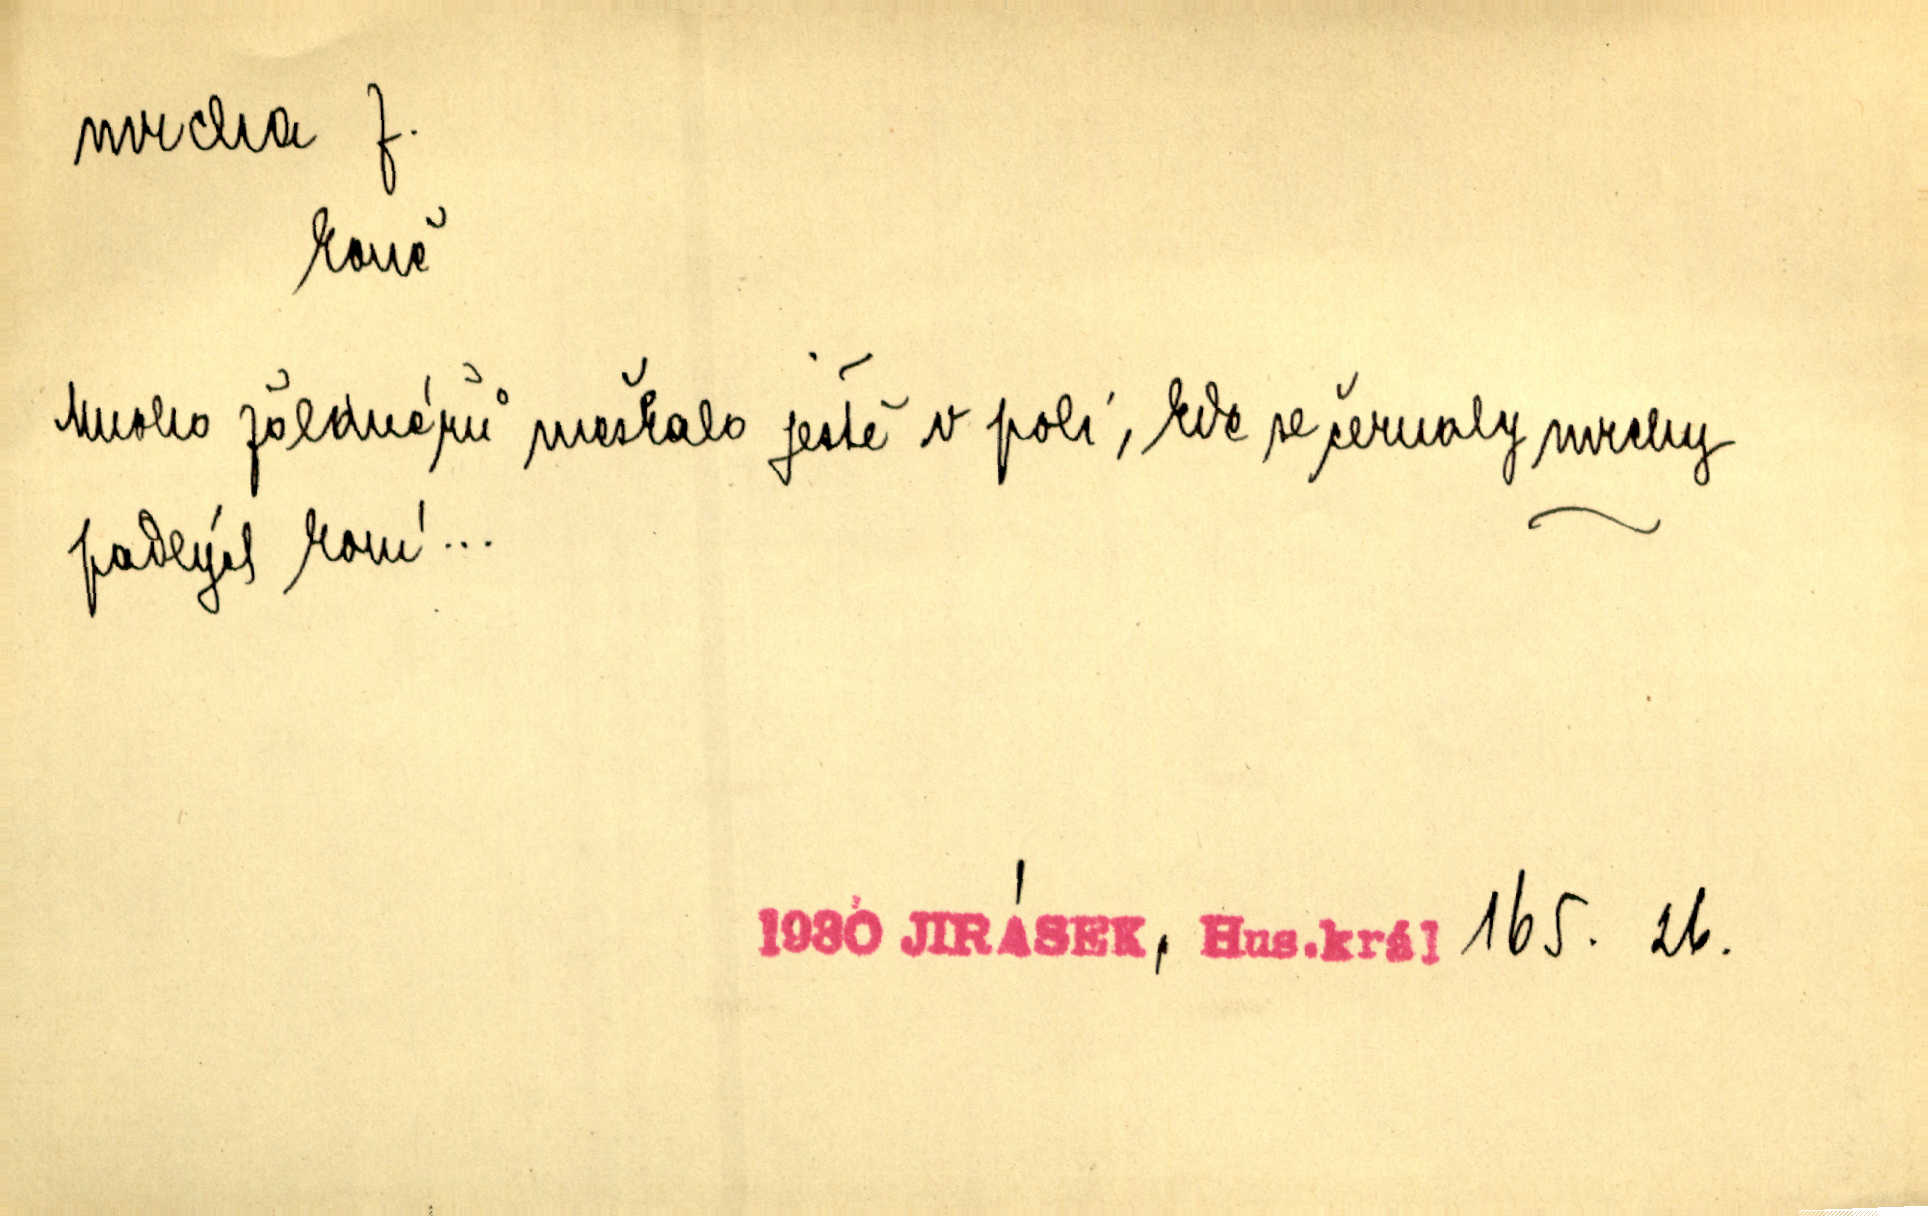 mrcha f.
koně
Mnoho žoldnéřů meškalo ještě v poli, kde se černaly mrchy
padlých koní...
1930 JIRÁSEK, Hus.král 165. 26.